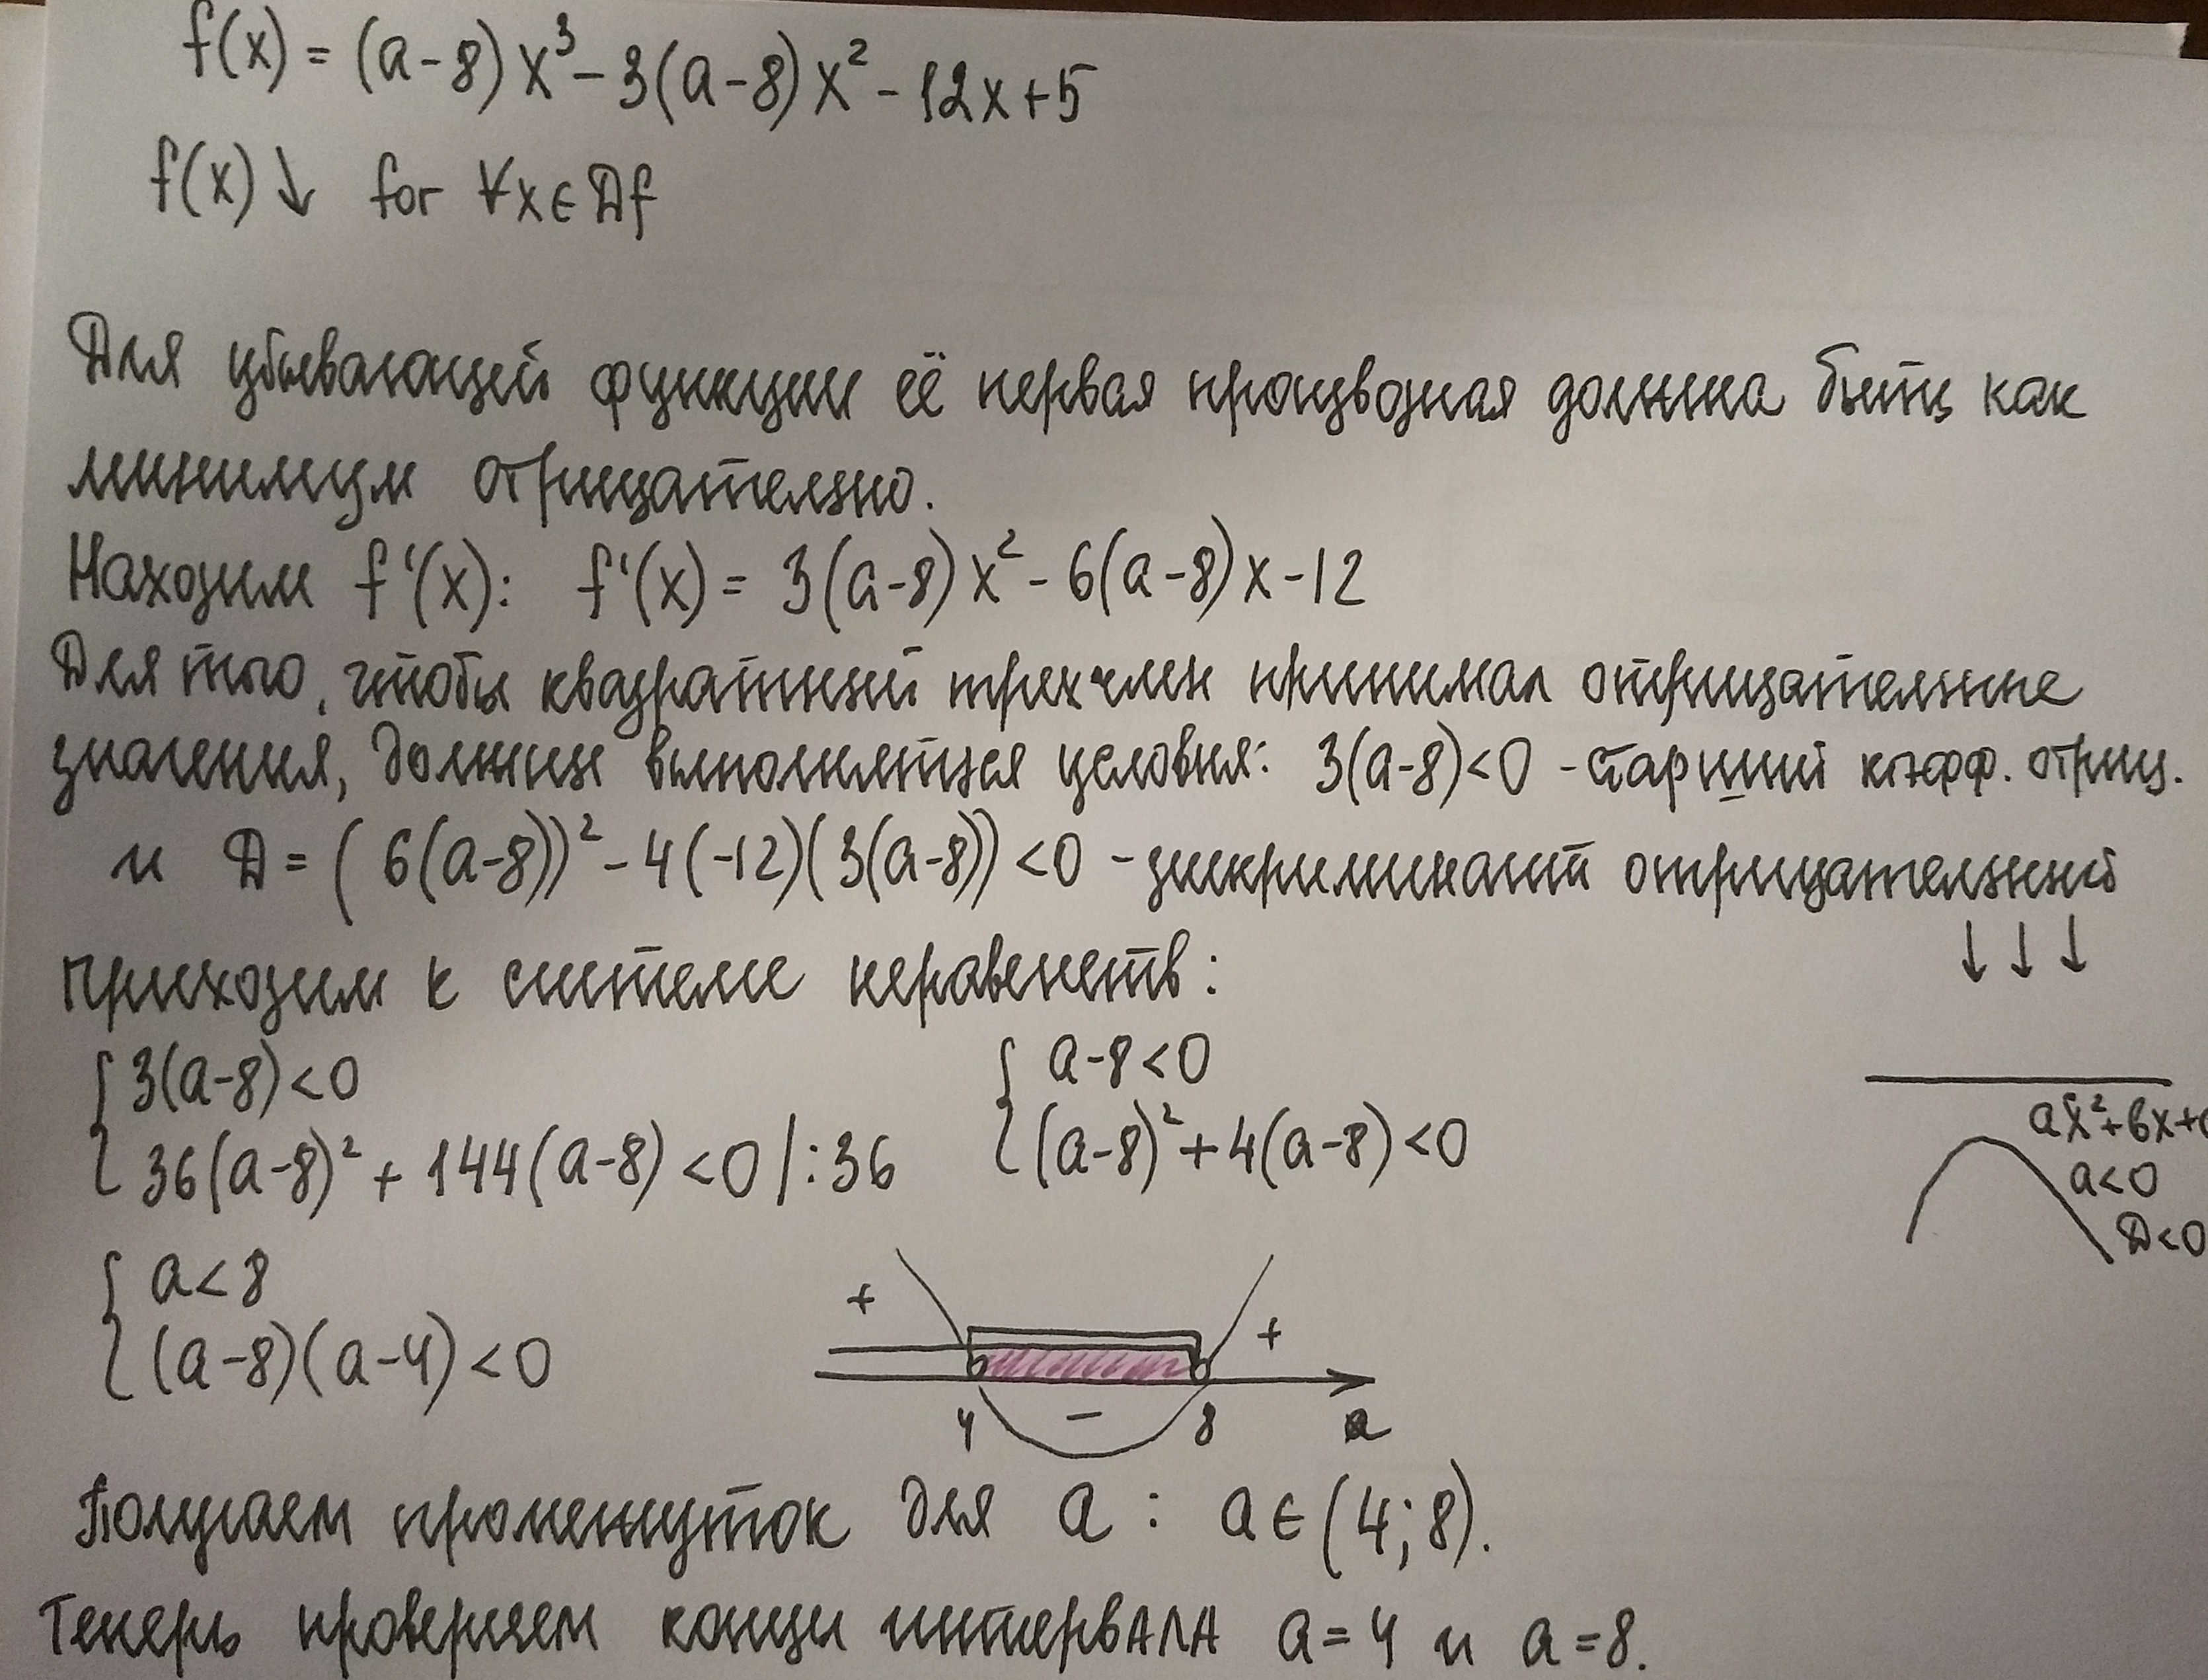 f(x) = (a-8)x³ - 3(a-8)x² - 12x + 5
f(x)↓ for ∀x∈Df
Для убывающей функции её первая производная должна быть как
минимум отрицательно.
Находим f'(x): f'(x) = 3(a-8)x² - 6(a-8)x - 12
Для того, чтобы квадратный трехчлен принимал отрицательные
значения, должны выполнятся условия: 3(a-8)<0 - старший коэфф. отриц.
и D = (6(a-8))² - 4(-12)(3(a-8)) < 0 - дискриминант отрицательный
↓ ↓ ↓
Приходим к системе неравенств:
{ 3(a-8)<0
36(a-8)² + 144(a-8) < 0 |:36
{ a-8<0
(a-8)² + 4(a-8) < 0
ax²+bx+c
a<0
D<0
{ a<8
(a-8)(a-4)<0
+ +
4 - 8 a
Получаем промежуток для a: a∈(4;8).
Теперь проверяем концы интервАЛА a=4 и a=8.